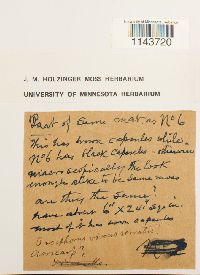 1143720
J. M. HOLZINGER MOSS HERBARIUM
UNIVERSITY OF MINNESOTA HERBARIUM
Part of same mat as No 6
This has brown capsules while
No 6 has black capsules - otherwise
macroscopically the look
enough alike to be same moss
are they the same?
have about 6" x 24" sq in
most of it has brown capsules